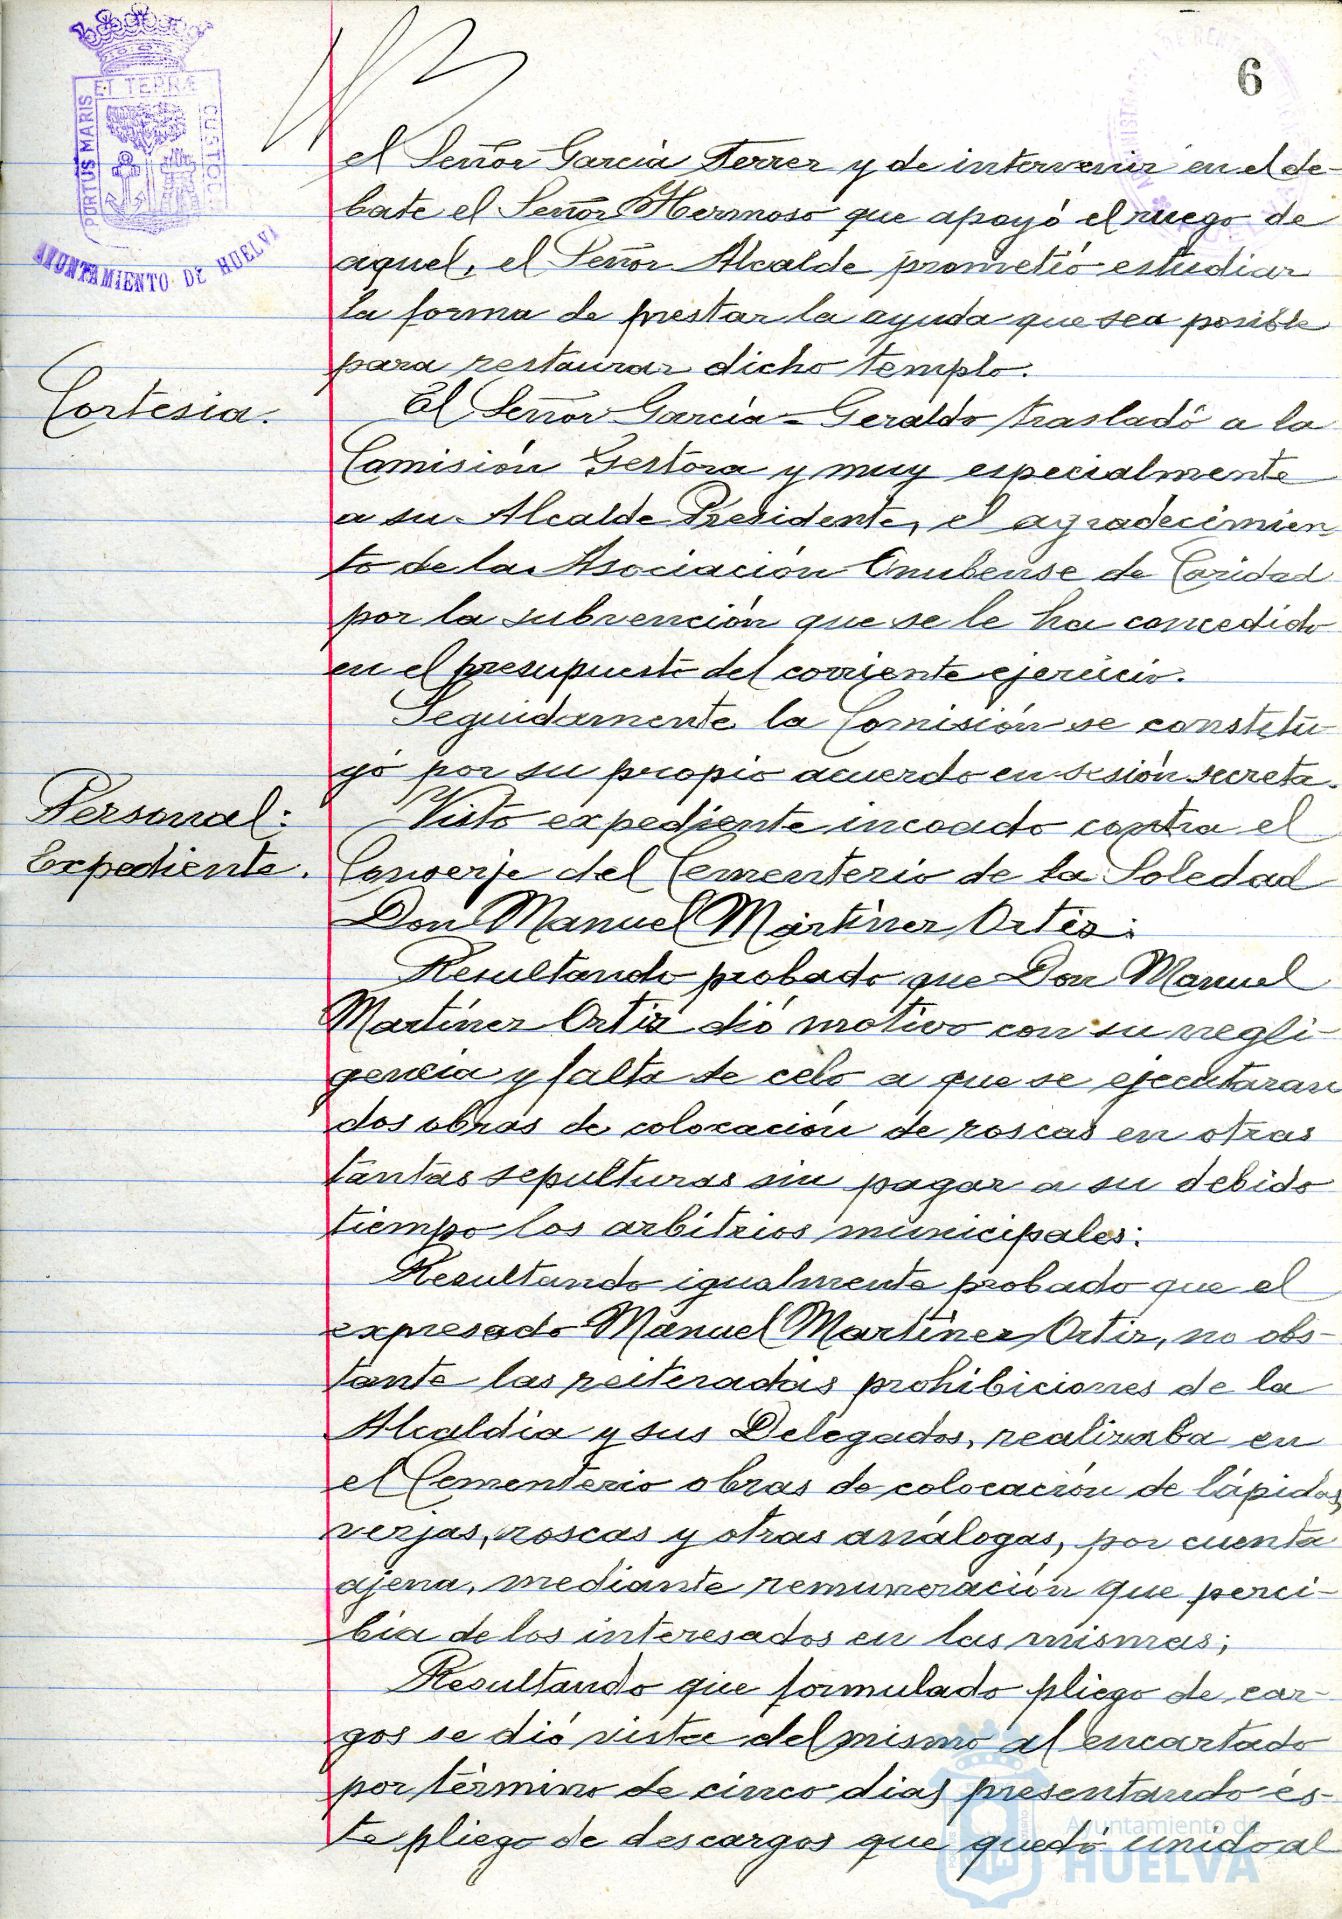 6
PORTUS MARIS ET TERRÆ CUSTODIA
AYUNTAMIENTO DE HUELVA
el Señor García Ferrer y de intervenir en el de-
bate el Señor Hermoso que apoyó el ruego de
aquel, el Señor Alcalde prometió estudiar
la forma de prestar la ayuda que sea posible
para restaurar dicho templo.
Cortesia.
El Señor García-Geraldo trasladó a la
Comisión Gestora y muy especialmente
a su Alcalde Presidente, el agradecimien
to de la Asociación Onubense de Caridad
por la subvención que se le ha concedido
en el presupuesto del corriente ejercicio.
Seguidamente la Comisión se constitu-
yó por su propio acuerdo en sesión secreta.
Personal:
Expediente.
Visto expediente incoado contra el
Conserje del Cementerio de la Soledad
Don Manuel Martínez Ortiz:
Resultando probado que Don Manuel
Martínez Ortiz dió motivo con su negli-
gencia y falta de celo a que se ejecutaran
dos obras de colocación de roscas en otras
tantas sepulturas sin pagar a su debido
tiempo los arbitrios municipales:
Resultando igualmente probado que el
expresado Manuel Martínez Ortiz, no obs-
tante las reiteradas prohibiciones de la
Alcaldía y sus Delegados, realizaba en
el Cementerio obras de colocación de lápidas,
verjas, roscas y otras análogas, por cuenta
ajena, mediante remuneración que perci-
bía de los interesados en las mismas;
Resultando que formulado pliego de car-
gos se dió vista del mismo al encartado
por término de cinco dias, presentando és-
te pliego de descargos que quedó unido al
Ayuntamiento de
HUELVA